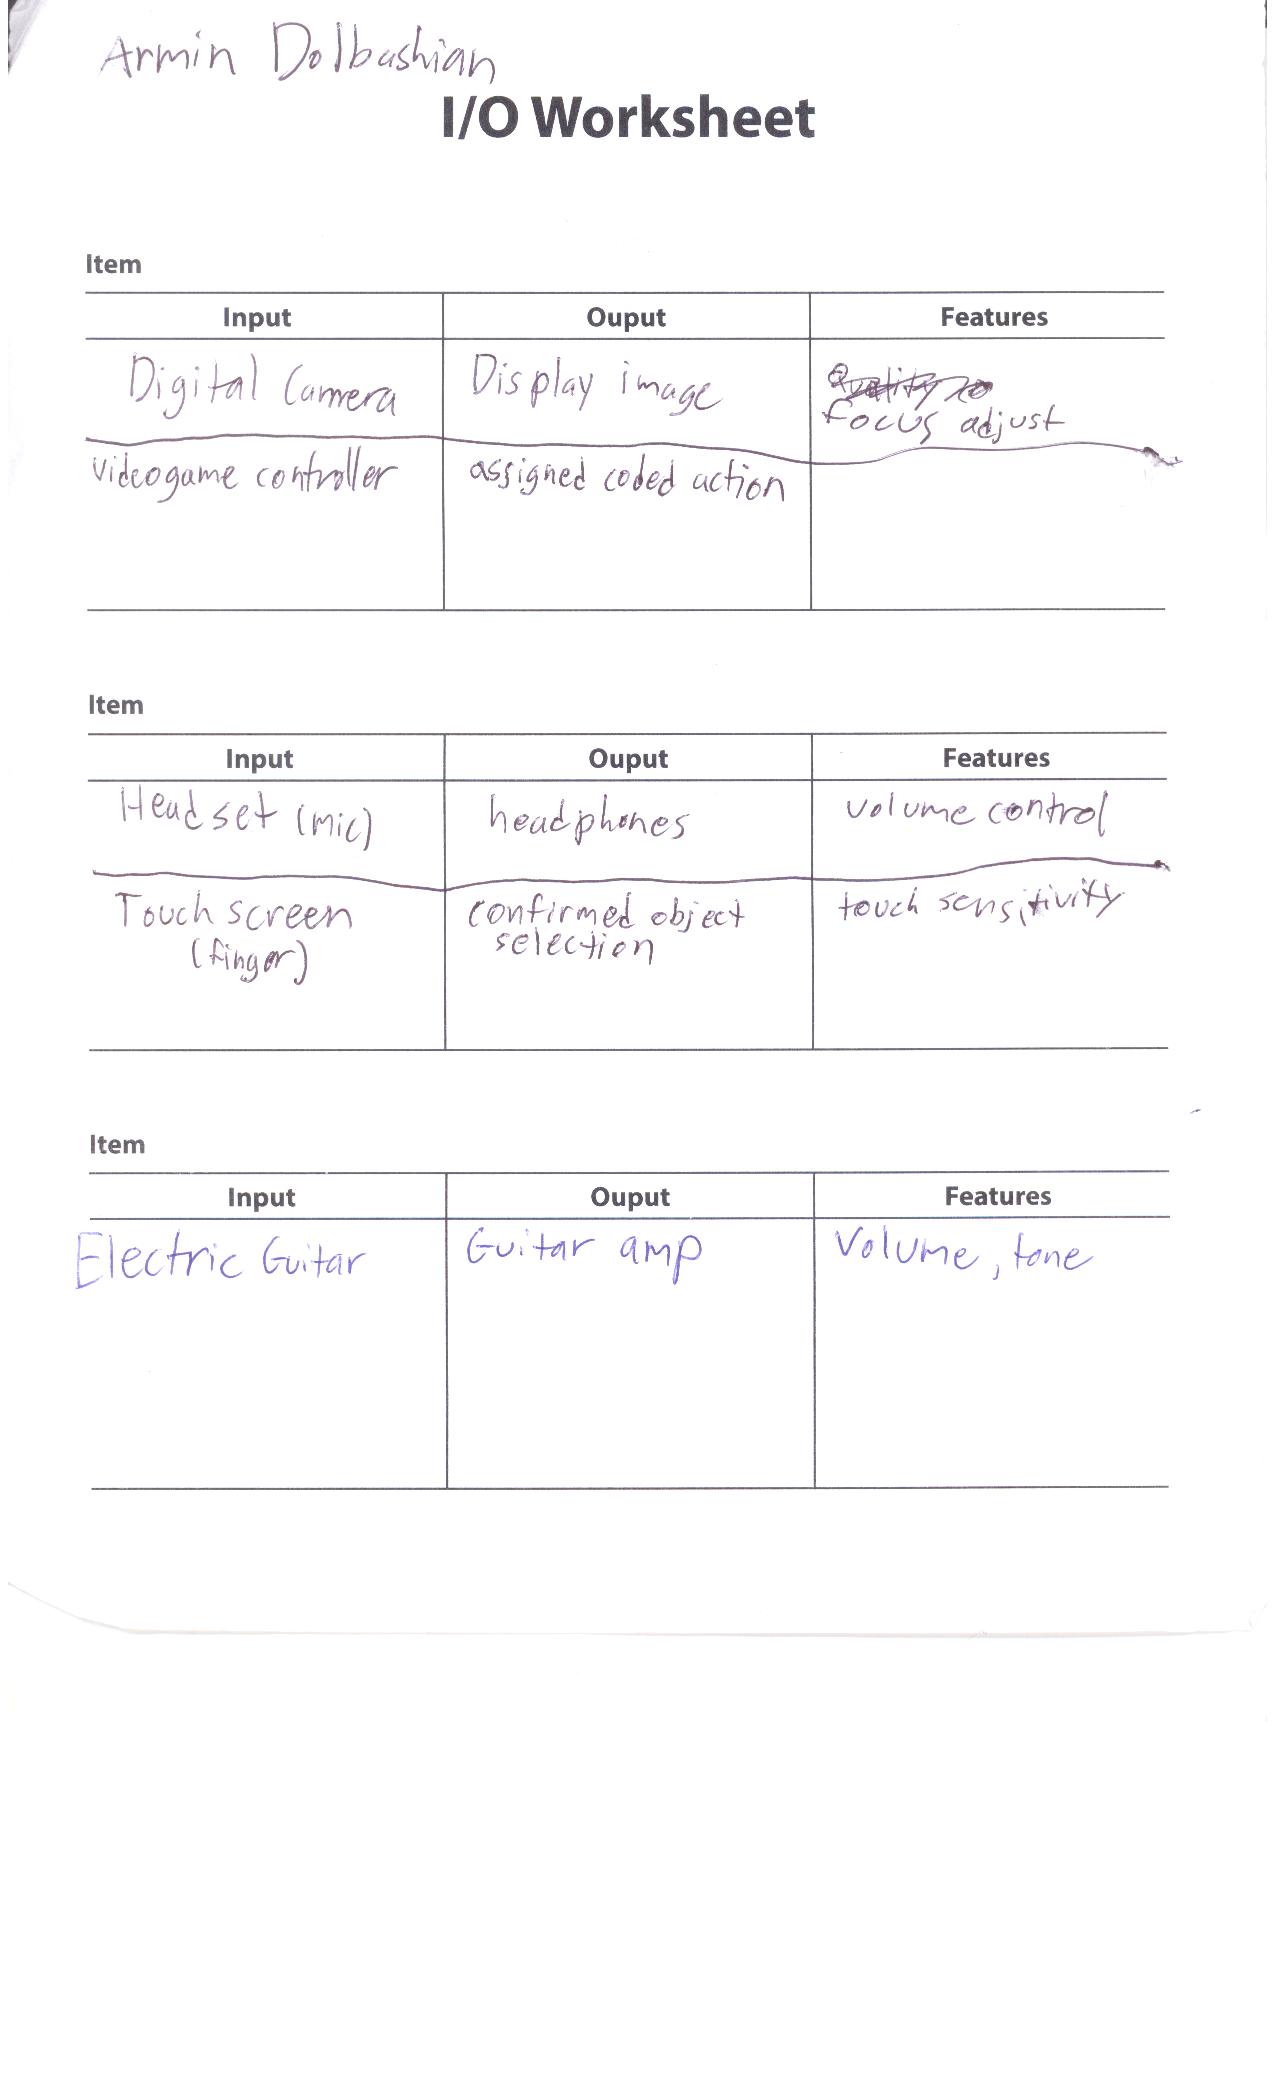 Armin Dolbashian
I/O Worksheet
Item
Input Ouput Features
Digital Camera Display image
focus adjust
videogame controller assigned coded action
Item
Input Ouput Features
Headset (mic) headphones volume control
Touch screen confirmed object touch sensitivity
(finger) selection
Item
Input Ouput Features
Electric Guitar Guitar amp Volume, tone